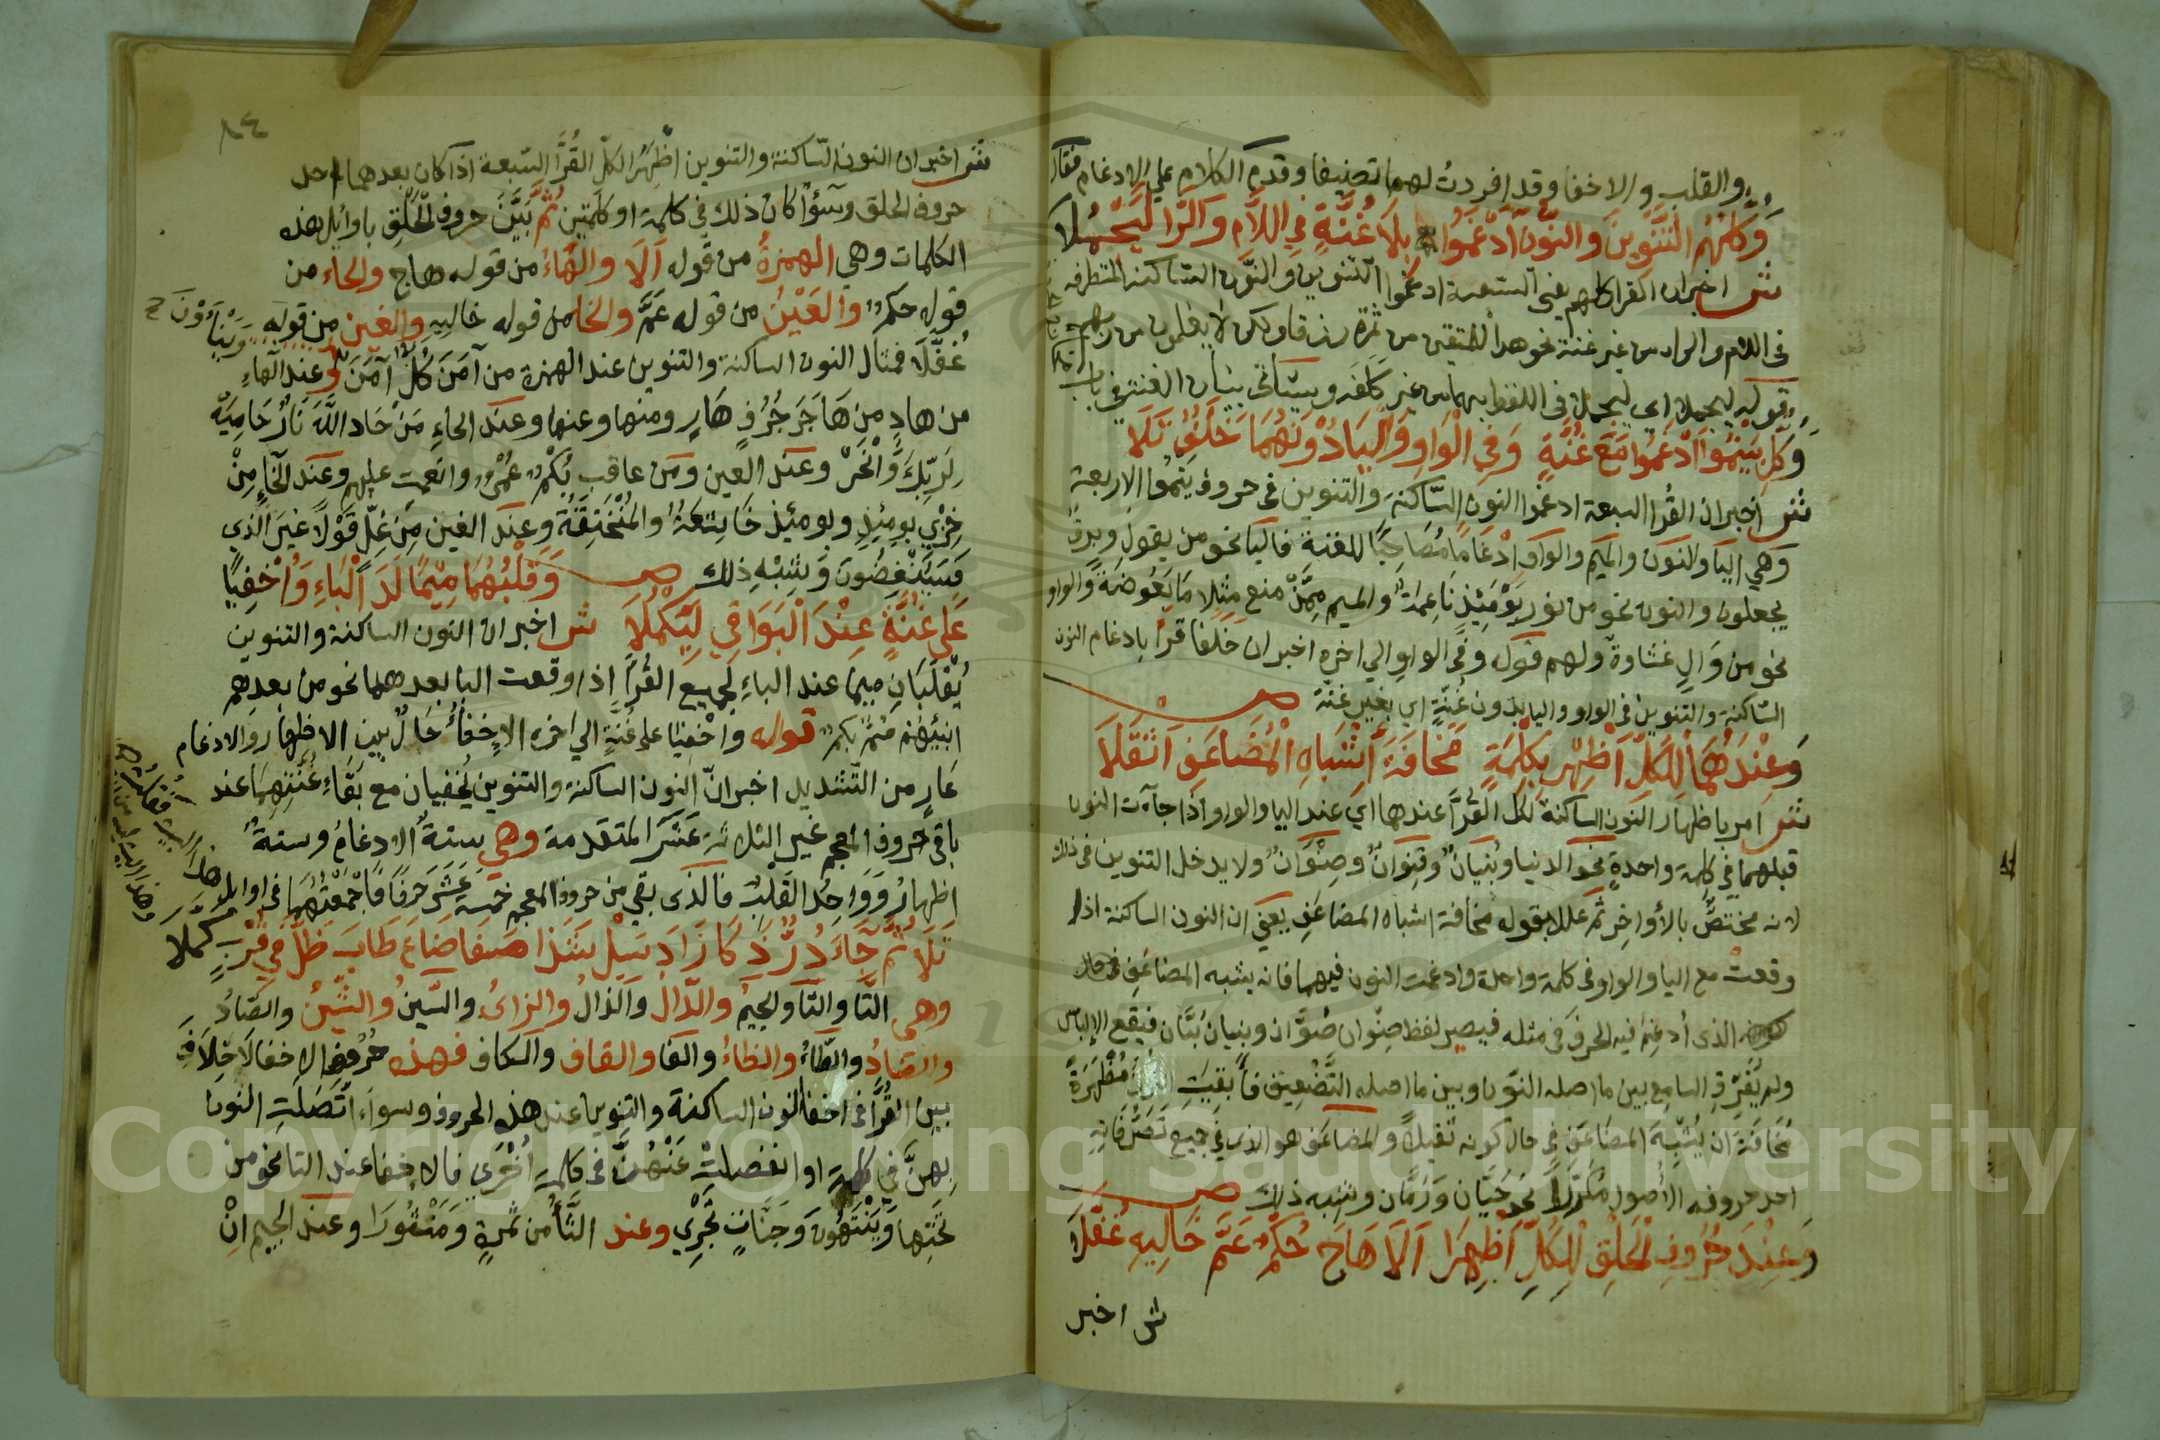 والقلب والاخفا وقد افردت لهما تصنيفا وقدم الكلام علي الادغام فقال
وَكُلُّهُم التَّنْوِينَ والنّونَ أدْغَمُوا بِلاَ غُنَّةٍ فِي اللاَّمِ وَالرَّا لِيَجْمُلاَ
ش اخبر ان القرا كلهم يعني السبعة ادغموا التنوين والنون الساكنة المتطرفة
في اللام والرا من غير غنة نحو هدًا للمتقين من ثمرة رزقا ولكن لا يعلمون من ربهم
قوله ليجملا اي ليجملا في اللفظ بهما من غير كلفه وسياتي بيان الغنة في باب
وَكُلٌّ بِيَنْمُو أَدْغَمُوا مَعَ غُنَّةٍ وَفِي الْوَاوِ وَالْيَا دُونَهَا خَلَفٌ تَلاَ
ش اخبر ان القُرا السبعة ادغموا النون السّاكنة والتنوين في حروف ينموا الاربعة
وهي اليا والنون والميم والواو ادْغَامًا مُصَاحِبًا للغنة فاليا نحو من يقول وبرق
يجعلون والنون نحو من نور يَوْمَئِذٍ نَاعِمَة والميم مِمَّنْ منع مثلا ما بعوضة والواو
نحو من وَالٍ غشاوة ولهم قوله وفي الواو الي اخره اخبر ان خلفا قرا بادغام النون
الساكنة والتنوين في الواو واليا بدون غُنَّةٍ اي بغير غنة
وَعِنْدَهُمَا لِلْكُلِّ أَظْهِرْ بِكِلْمَةٍ مَخَافَةَ أَشْبَاهِ الْمُضَاعَفِ أَثْقَلاَ
ش امر باظهار النون الساكنة لكل القُرَّا عندها اي عند اليا والواو اذا جآءت النون
قبلهما في كلمة واحدة نحو الدنيا وبُنيانٌ وقِنوانٌ وصِنْوَانٌ ولا يدخل التنوين في ذلك
لانه مختصٌّ بالأواخِر ثم علل بقوله مخافة اشباه المضاعَفِ يعني ان النون الساكنة اذا
وقعت مع اليا والواو في كلمة واحدة وادغمت النون فيهما فانه يشبه المضاعف في حال
كونه الذي أدغِمَ فيه الحرف في مثله فيصير لفظ صِنْوان صُوَّان وبنيان بُيَّان فيقع الإلباس
ولم يُفَرِّق السامع بين ما اصله النون وبين ما اصله التَّضْعِيف فأبقيت النون مُظْهَرَةً
مَخَافَةَ ان يُشْبِهَ المضاعف في حال كونه ثقيلاً والمضاعف هو الذي في جميع تَصَرُّفَاتِهِ
احد حروفه الأصول مكررًا نحو حَيَّان ورُمَّان وشبه ذلك
وَعِنْدَ حُرُوفِ الْحَلْقِ لِلْكُلِّ أَظْهِرَا أَلاَ هَاجَ حُكْمٌ عَمَّ خَالِيهِ غُفَّلاَ
ش اخبر
٨٤
ش اخبر ان النون الساكنة والتنوين اظْهَرَ الكلّ القُرَّا السّبعة اذا كان بعدهما احل
حروف الحلق وسَوٌآ كان ذلك في كلمة او كلمتين ثُمَّ بَيَّنَ حروف الْحَلْقِ باوائل هذه
الكلمات وهي الهمزةُ من قوله أَلَا والْهَاءُ من قوله هاج والحاء من
قوله حكمٌ والعَيْنُ من قوله عَمَّ والخا من قوله خاليهِ والغين من قوله
وَيَنْأَوْنَ ح
غُفَّلَا فمثال النون الساكنة والتنوين عند الهمزة من آمَنَ كُلٌّ آمَنَ وعند الهاءِ
من هادٍ من هَاجَرَ جُرُفٍ هَارٍ ومنها وعنها وعند الحاءِ مَنْ حَاد اللَّهَ نَارٌ حَامِيَةٌ
لِرَبِّكَ وَانْحَرْ وعند العين ومن عاقب بُكْمٌ عُمْيٌ وانعمت عليهم وعند الخاءِ مِنْ
خِزْيِ يومِئِذٍ ويومئِذٍ خَاشِعَةٌ والمُنْخَنِقَةُ وعند الغين مِن غِلٍّ قَوْلاً غيرَ الذي
فَسَيُنْغِضُونَ وَشِبْهِ ذلك وَقَلْبُهُمَا مِيْمًا لَدَا الْبَاءِ وَأُخْفِيَا
عَلى غُنَّةٍ عِنْدَ الْبَوَاقِي لِيَكْمُلَا ش اخبر ان النون الساكنة والتنوين
يُقْلَبَانِ ميمًا عند الباءِ لجميع القُرَّا اذا وقعت البا بعدهما نحو من بعدهم
انبِئْهُمْ صُمٌّ بُكْمٌ قوله واخْفِيَا علي غُنَّةٍ الي اخره الإخفاءُ حَالٌ بين الاظهار والادغام
عَارٍ من التّشديد اخبر انّ النون الساكنة والتنوين يُخفيان مع بَقَاءِ غُنَّتِهِمَا عند
باقي حروف المعجم غير الثلاثة عَشَرَ المتقدمة وهي ستةُ الادغامُ وستةٌ
اظهارٌ وَوَاحِدُ القَلْبُ فالذي بقي من حروف المعجم خمسة عَشَرَ حَرْفًا جَمَعْتُهَا في اوائل
تَلَا ثُمَّ جَاءَ دُرٌّ ذَكَا زَادَ سَيْلُ شَذَا صَفَا ضَاعَ طَابَ ظِلَّ فِي قُرْبِ كَمُلاَ
وهي التَّا والثَّا والجيمُ والدّال والذالُ والزاىُ والسّينُ والشّينُ والصّادُ
والضادُ والطّاءُ والظاءُ والفا والقاف والكاف فهذه حُرُوفُ الاخفا لا خِلاَفَ
بين القُرَّا في اخفا النون الساكنة والتنوين عند هذه الحروف وسوآء اتَّصَلَتِ النون
بِهِنَّ في كلمةٍ او انفصلتْ عَنْهُنَّ في كلمةٍ أُخْرَي فالاخفا عند التا نحو من
تَحْتِهَا وَيَنْتَهُونَ وَجَنَّاتٍ تَجْرِي وعند الثَّاءُ من ثمرةٍ وَمَنْثُورًا وعند الجيم انْ
Copyright © King Saud University